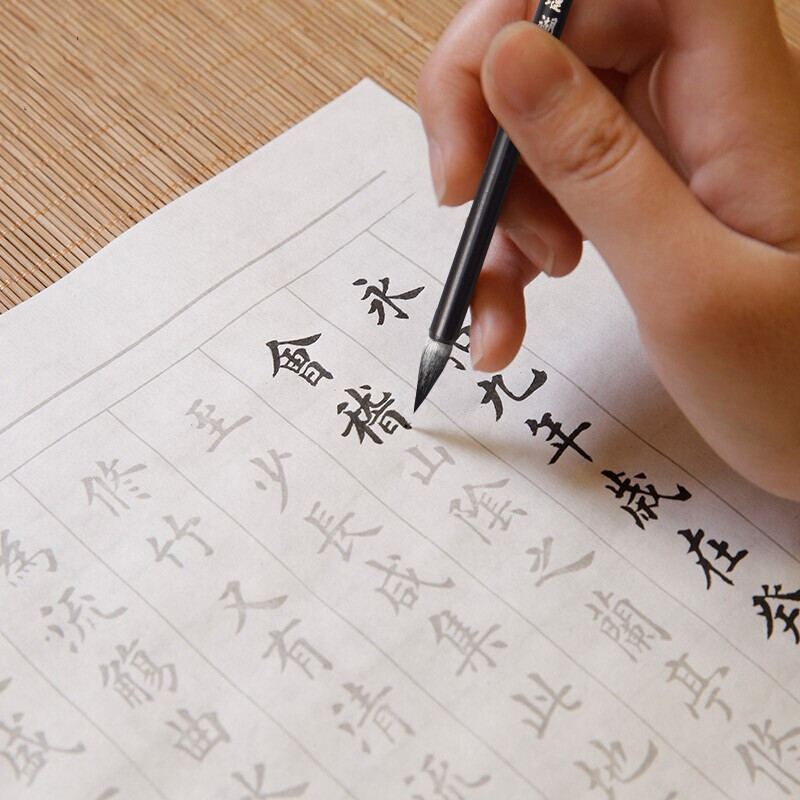 永九年歲在癸
會稽山陰之蘭亭修
至少長咸集此地
修竹又有清流
為流觴曲水
盛